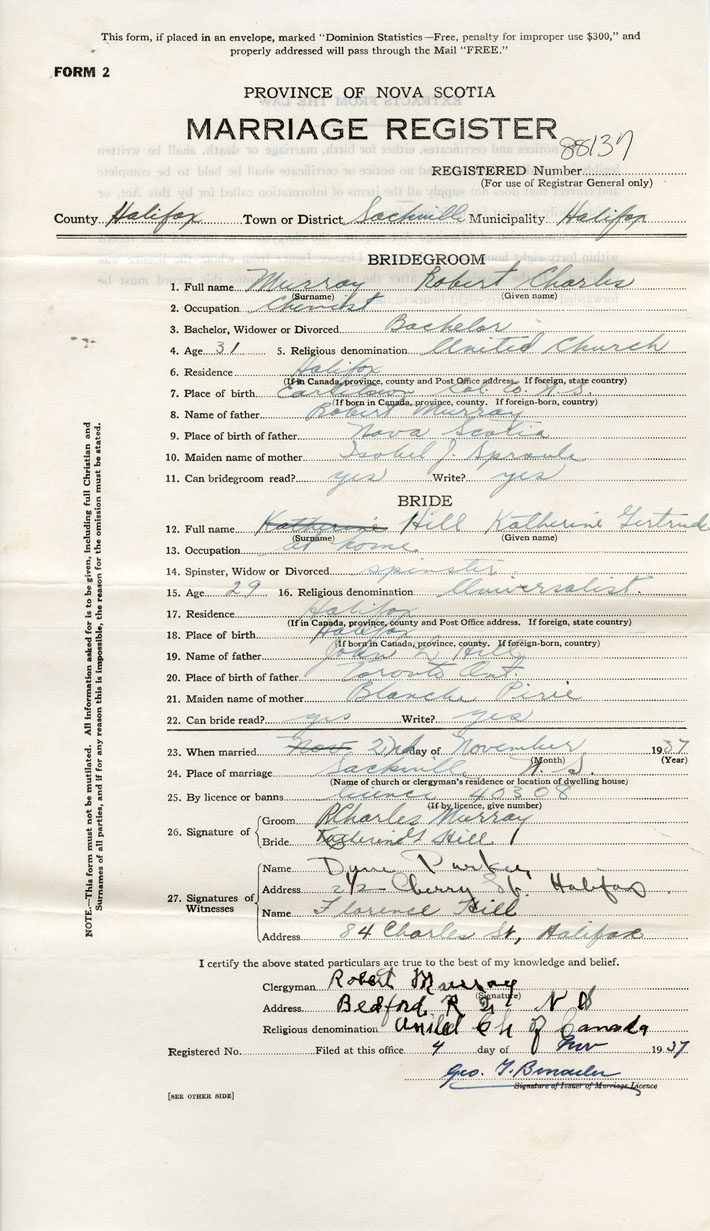 This form, if placed in an envelope, marked "Dominion Statistics—Free, penalty for improper use $300," and
properly addressed will pass through the Mail "FREE."
FORM 2
PROVINCE OF NOVA SCOTIA
MARRIAGE REGISTER
88137
REGISTERED Number
(For use of Registrar General only)
County Halifax Town or District Sackville Municipality Halifax
BRIDEGROOM
1. Full name Murray Robert Charles
(Surname) (Given name)
2. Occupation Chemist
3. Bachelor, Widower or Divorced Bachelor
4. Age 31 5. Religious denomination United Church
6. Residence Halifax
(If in Canada, province, county and Post Office address. If foreign, state country)
7. Place of birth Earltown Col. Co. N.S.
(If born in Canada, province, county. If foreign-born, country)
8. Name of father Robert Murray
9. Place of birth of father Nova Scotia
10. Maiden name of mother Isobel J. Sproule
11. Can bridegroom read? yes Write? yes
BRIDE
12. Full name Katherine Hill Katherine Gertrude
(Surname) (Given name)
13. Occupation at home
14. Spinster, Widow or Divorced spinster
15. Age 29 16. Religious denomination Universalist.
17. Residence Halifax
(If in Canada, province, county and Post Office address. If foreign, state country)
18. Place of birth Halifax
(If born in Canada, province, county. If foreign-born, country)
19. Name of father John L Hill
20. Place of birth of father Toronto Ont.
21. Maiden name of mother Blanche Pirie
22. Can bride read? yes Write? yes
23. When married Nov 2nd day of November 1937
(Month) (Year)
24. Place of marriage Sackville N.S.
(Name of church or clergyman's residence or location of dwelling house)
25. By licence or banns licence 40308
(If by licence, give number)
26. Signature of
Groom RCharles Murray
Bride Hill
27. Signatures of Witnesses
Name Parker
Address Cherry St. Halifax
Name Florence Hill
Address 84 Charles St, Halifax
I certify the above stated particulars are true to the best of my knowledge and belief.
Clergyman Robert Murray
(Signature)
Address Bedford R N S
Religious denomination United Ch of Canada
Registered No. Filed at this office 4 day of Nov 1937
Geo. T.
Signature of Issuer of Marriage Licence
[SEE OTHER SIDE]
NOTE.—This form must not be mutilated. All information asked for is to be given, including full Christian and
Surnames of all parties, and if for any reason this is impossible, the reason for the omission must be stated.